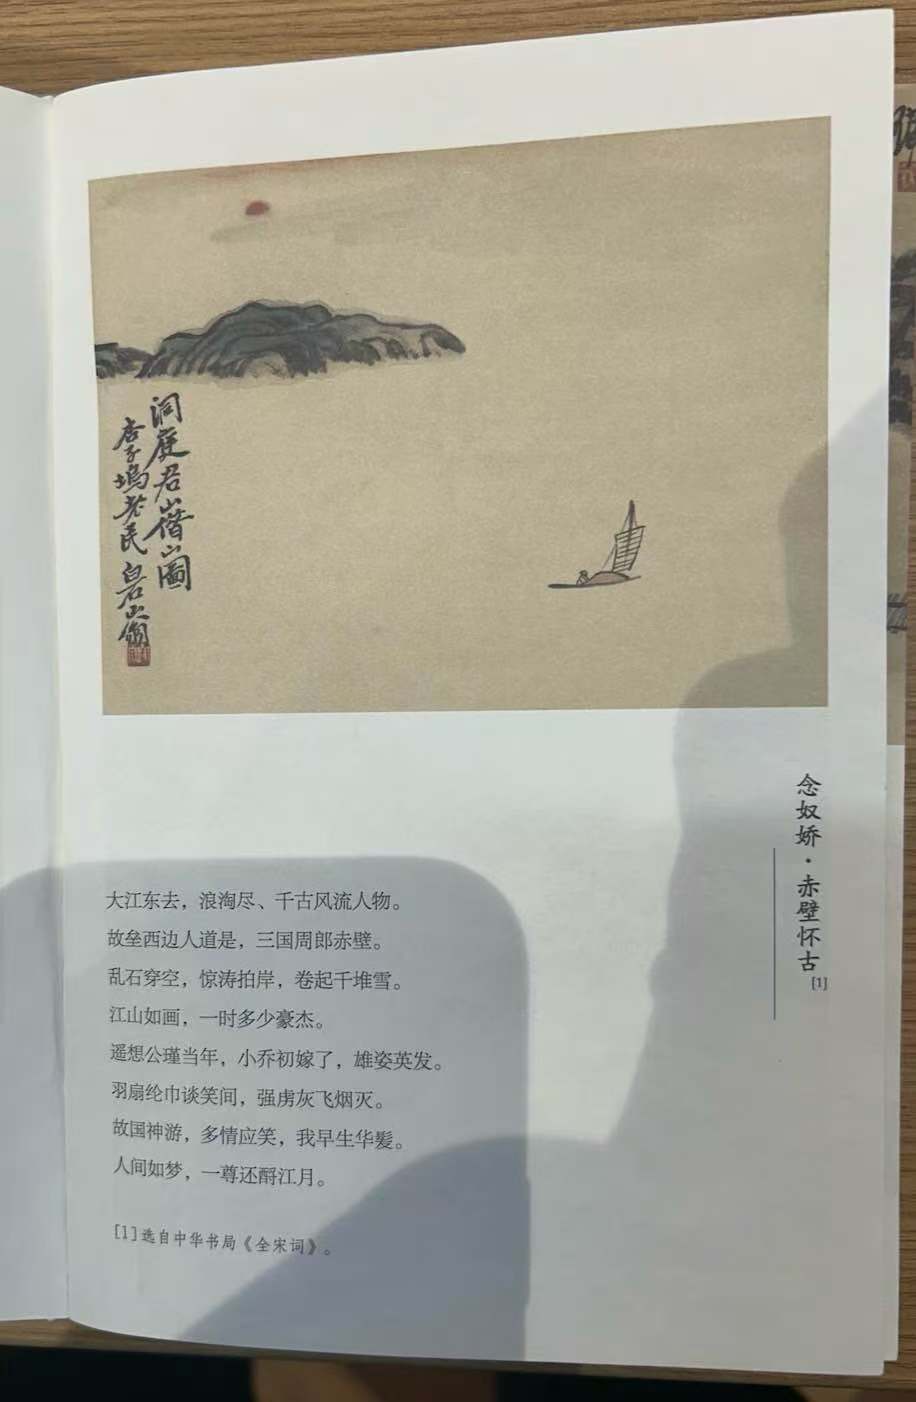 洞庭君山借山圖
杏子塢老民白石山翁
念奴娇·赤壁怀古[1]
大江东去，浪淘尽、千古风流人物。
故垒西边人道是，三国周郎赤壁。
乱石穿空，惊涛拍岸，卷起千堆雪。
江山如画，一时多少豪杰。
遥想公瑾当年，小乔初嫁了，雄姿英发。
羽扇纶巾谈笑间，强虏灰飞烟灭。
故国神游，多情应笑，我早生华髪。
人间如梦，一尊还酹江月。
[1]选自中华书局《全宋词》。